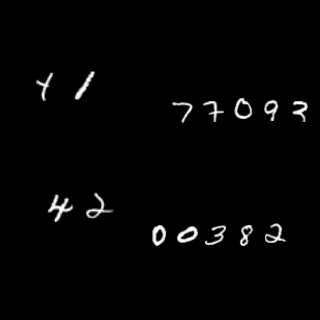 41
77093
42
00382